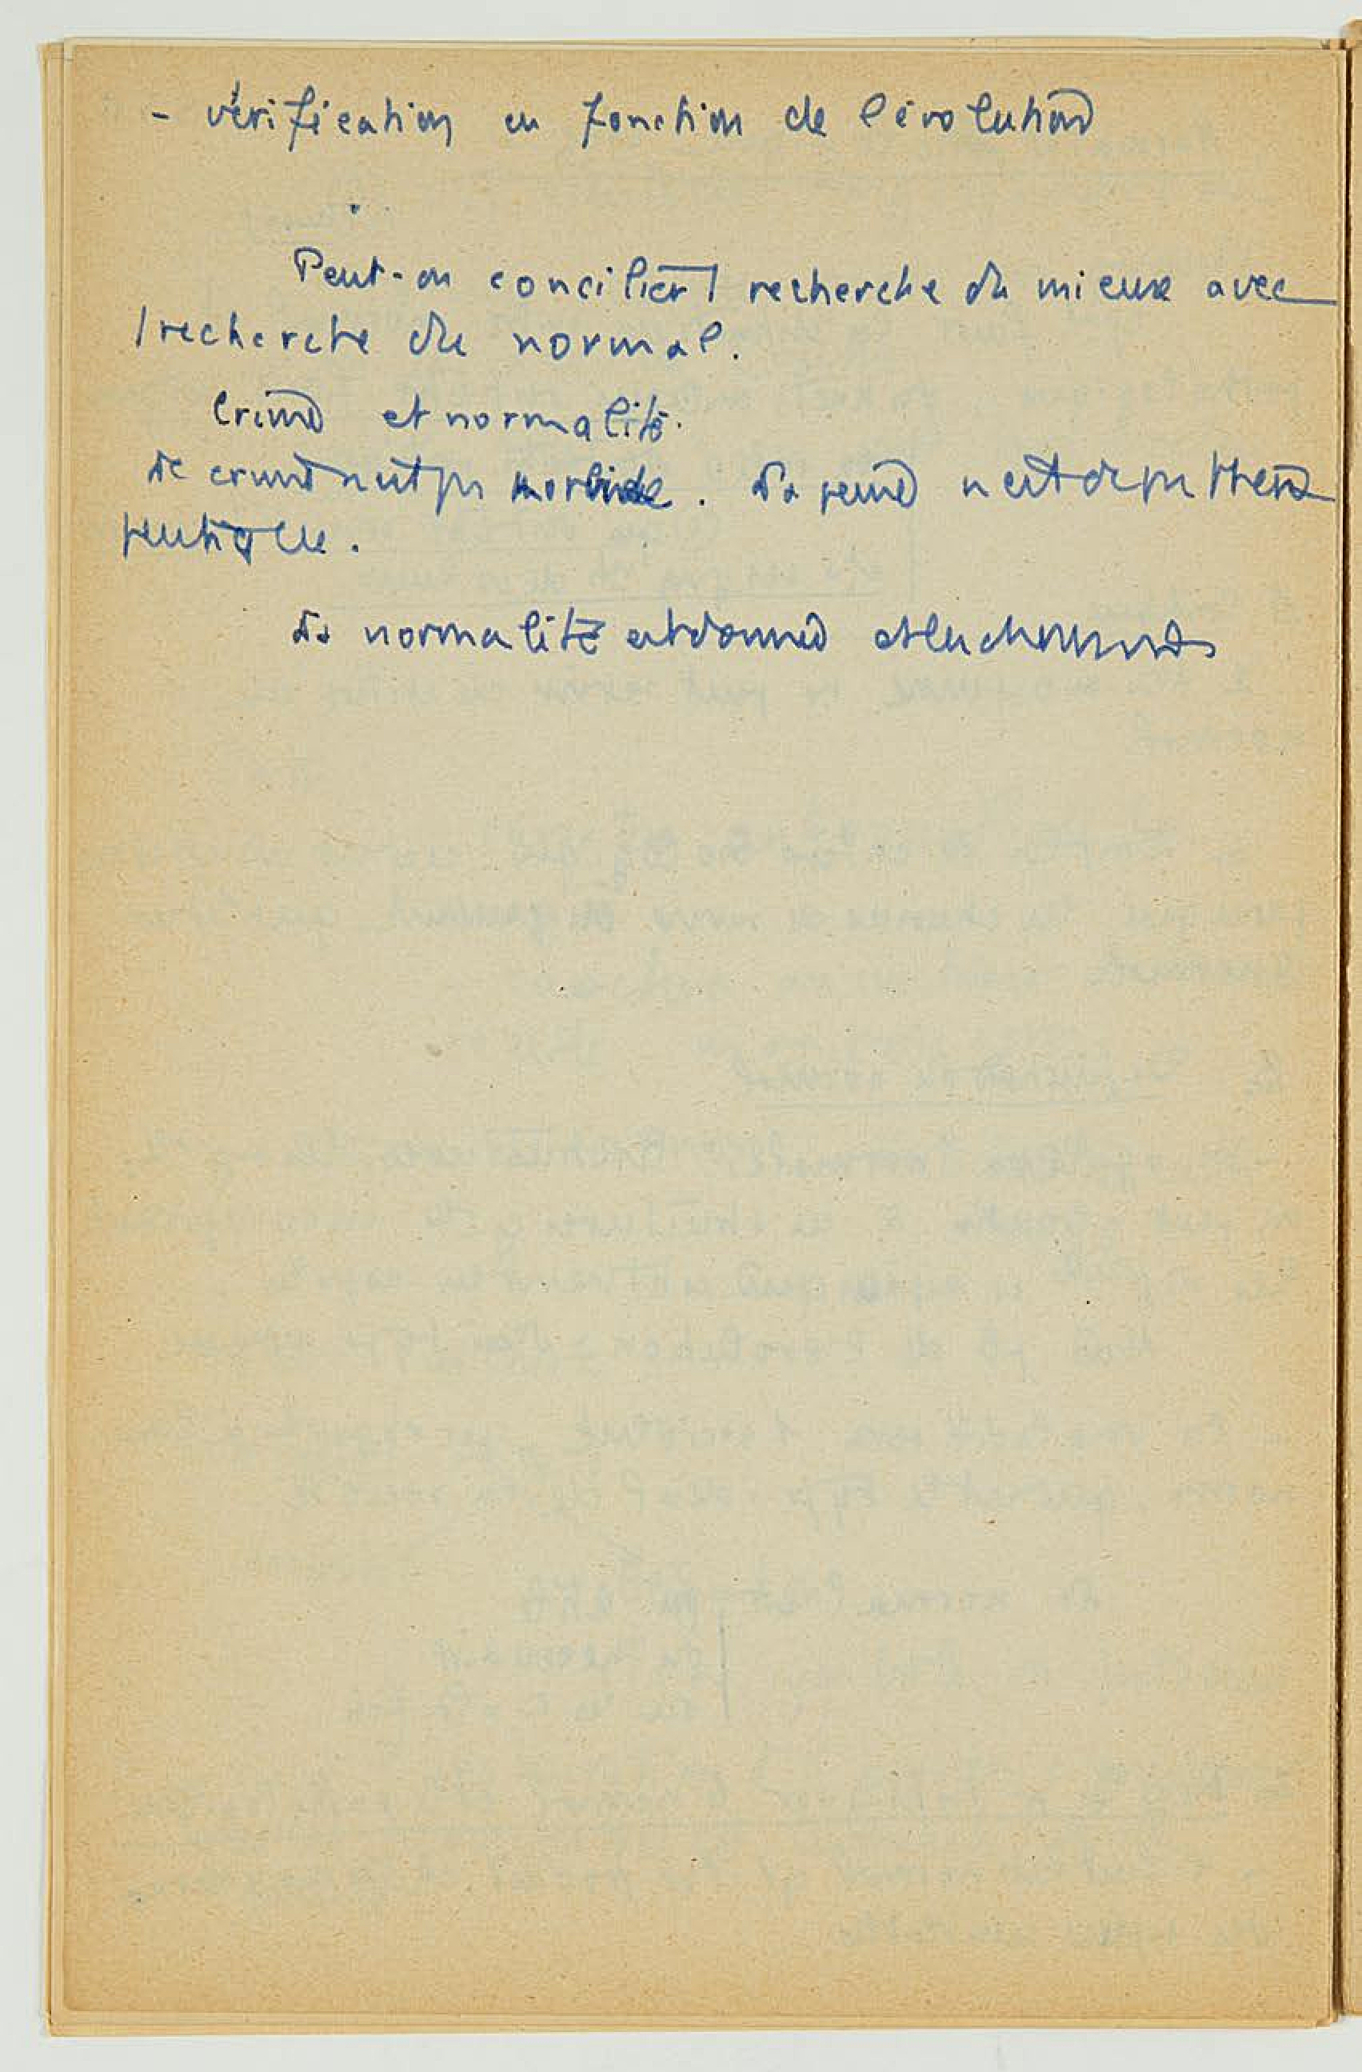 - vérification en fonction de l'évolution
Peut-on concilier recherche du mieux avec
recherche du normal.
Crime et normalité.
Le crime n'est pas morbide. La peine n'est donc pas théra
peutique.
La normalité est donnée